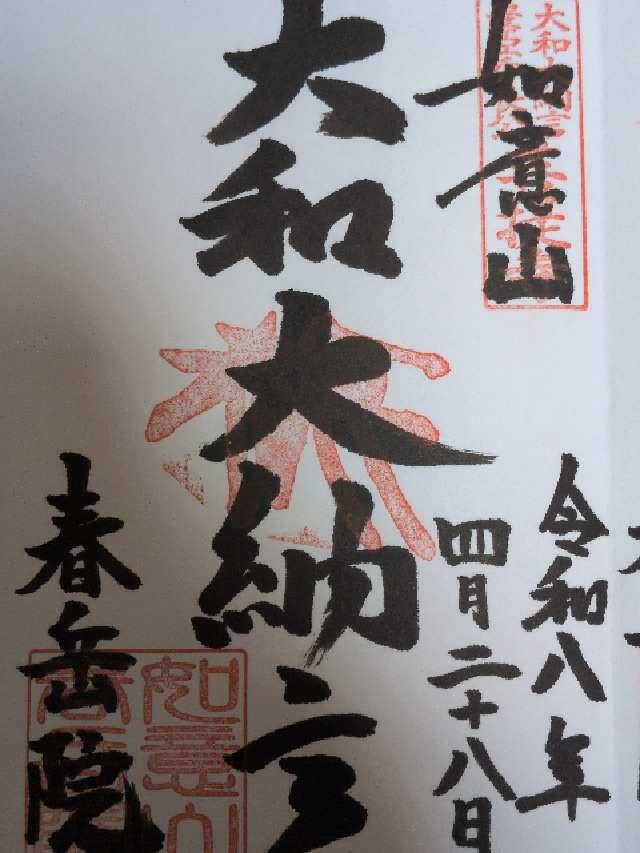 如意山
令和八年
四月二十八日
大和大納言
春岳院
如意山